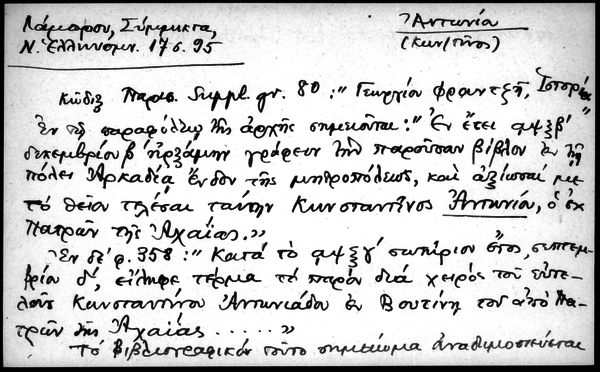 Λάμπρου, Σύμμικτα,
Ν. Ἑλληνομν. 17 σ. 95
Ἀντωνία
(Κων/τῖνος)
Κῶδιξ Παρισ. Suppl. gr. 80 : "Γεωργίου Φραντζῆ, Ἱστορία"
Ἐν τῷ παραφύλλῳ τῆς ἀρχῆς σημειοῦται : "Ἐν ἔτει αψξβ'
δεκεμβρίου β' ἠρξάμην γράφειν τὴν παροῦσαν βίβλον ἐν τῇ
πόλει Ἀρκαδίᾳ ἔνδον τῆς μητροπόλεως, καὶ ἀξιῶσαι με
τὸ θεῖον τελέσαι ταύτην Κωνσταντῖνος Ἀντωνίου, ὁ ἐκ
Πατρῶν τῆς Ἀχαΐας.»
Ἐν δὲ φ. 358 : "Κατὰ τὸ αψξγ' σωτήριον ἔτος, σεπτεμ-
βρίου δ', εἴληφε τέρμα τὸ παρὸν διὰ χειρὸς τοῦ εὐτε-
λοῦς Κωνσταντίνου Ἀντωνιάδου ἐν Βουτίνῃ τοῦ ἀπὸ Πα-
τρῶν τῆς Ἀχαΐας . . . . . . »
Τὸ βιβλιογραφικὸν τοῦτο σημείωμα ἀναδημοσιεύεται